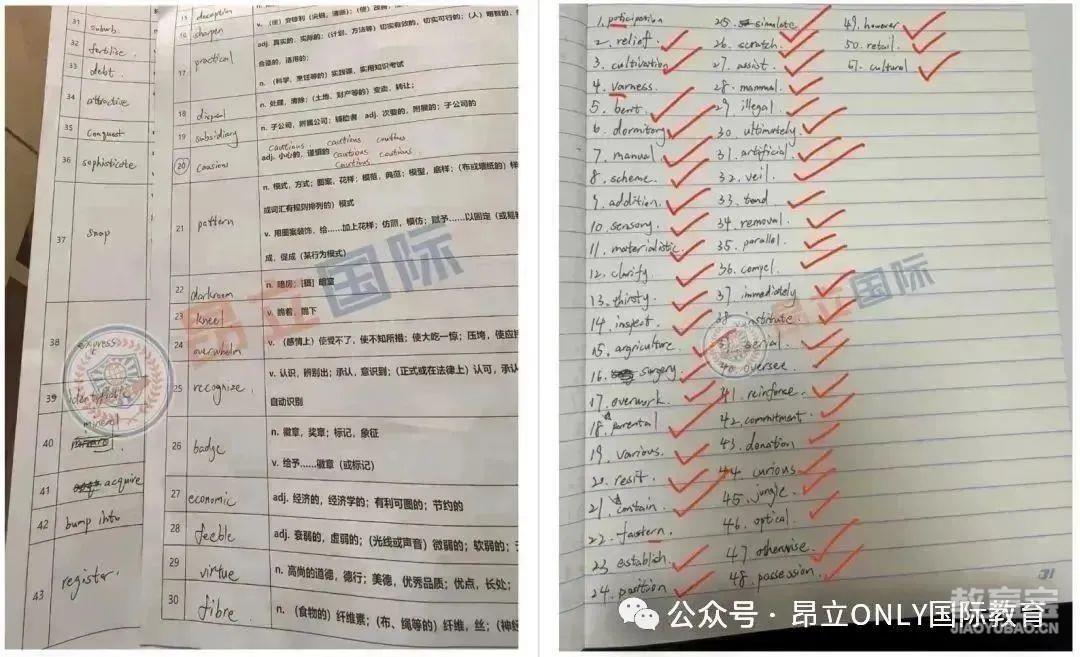 31 suburb.
32 fertilise.
33 debt.
34 attractive
35 Conquest
36 sophisticate
37 snap
38 express
39 identifiable
40 mineral
41 acquire
42 bump into
43 register.
15 deception
16 sharpen
17 practical
adj. 真实的,实际的;(计划、方法等)切实有效的,切实可行的;(人)明智的,
合适的,适用的;
n.(科学、烹饪等的)实践课,实用知识考试
18 disposal
n. 处理,清除;(土地、财产等的)变卖,转让;
19 subsidiary
n. 子公司,附属公司;辅助者 adj. 次要的,附属的;子公司的
cautious cautious cautious
20 causious
adj. 小心的,谨慎的 cautious cautious.
cautious.
21 pattern
n. 模式,方式;图案,花样;模范,典范;模型,底样;(布或墙纸的)样
或词汇有规则排列的)模式
v. 用图案装饰,给……加上花样;仿照,模仿;赋予……以固定(或易
成,促成(某行为模式)
22 darkroom
n. 暗房;[摄]暗室
23 kneel
v. 跪着,跪下
24 overwhelm
v.(感情上)使受不了,使不知所措;使大吃一惊;压垮,使应接
25 recognize
v. 认识,辨别出;承认,意识到;(正式或在法律上)认可,承认
自动识别
26 badge
n. 徽章,奖章;标记,象征
v. 给予……徽章(或标记)
27 economic
adj. 经济的,经济学的;有利可图的;节约的
28 feeble
adj. 衰弱的,虚弱的;(光线或声音)微弱的;软弱的;
29 virtue
n. 高尚的道德,德行;美德,优秀品质;优点,长处;
30 fibre
n.(食物的)纤维素;(布、绳等的)纤维,丝;(神经
昂立国际
1. paticipation
2. relief.
3. cultivation
4. varness.
5. berit.
6. dormitory
7. manual
8. scheme.
9. addition.
10. sensory.
11. materialistic
12. clarify
13. thirsty.
14. inspect
15. argriculture.
16. surgery
17. overwork.
18. parental
19. various.
20. resit.
21. contain.
22. fastern.
23 establish.
24. position
25. simulate
26. scratch.
27. assist.
28. mammal.
29. illegal
30. ultimately.
31. artificial
32. veil.
33. tend
34. removal.
35. parallel.
36. compel.
37. immediately
38. institute
39. serial
40. oversee
41. reinforce
42. commitment.
43. donation
44. curious
45. jungle.
46. optical
47 otherwise
48. possession
49. however
50. retail.
51. cultural
昂立国际
31
公众号·昂立ONLY国际教育
教育宝
JIAOYUBAO.CN